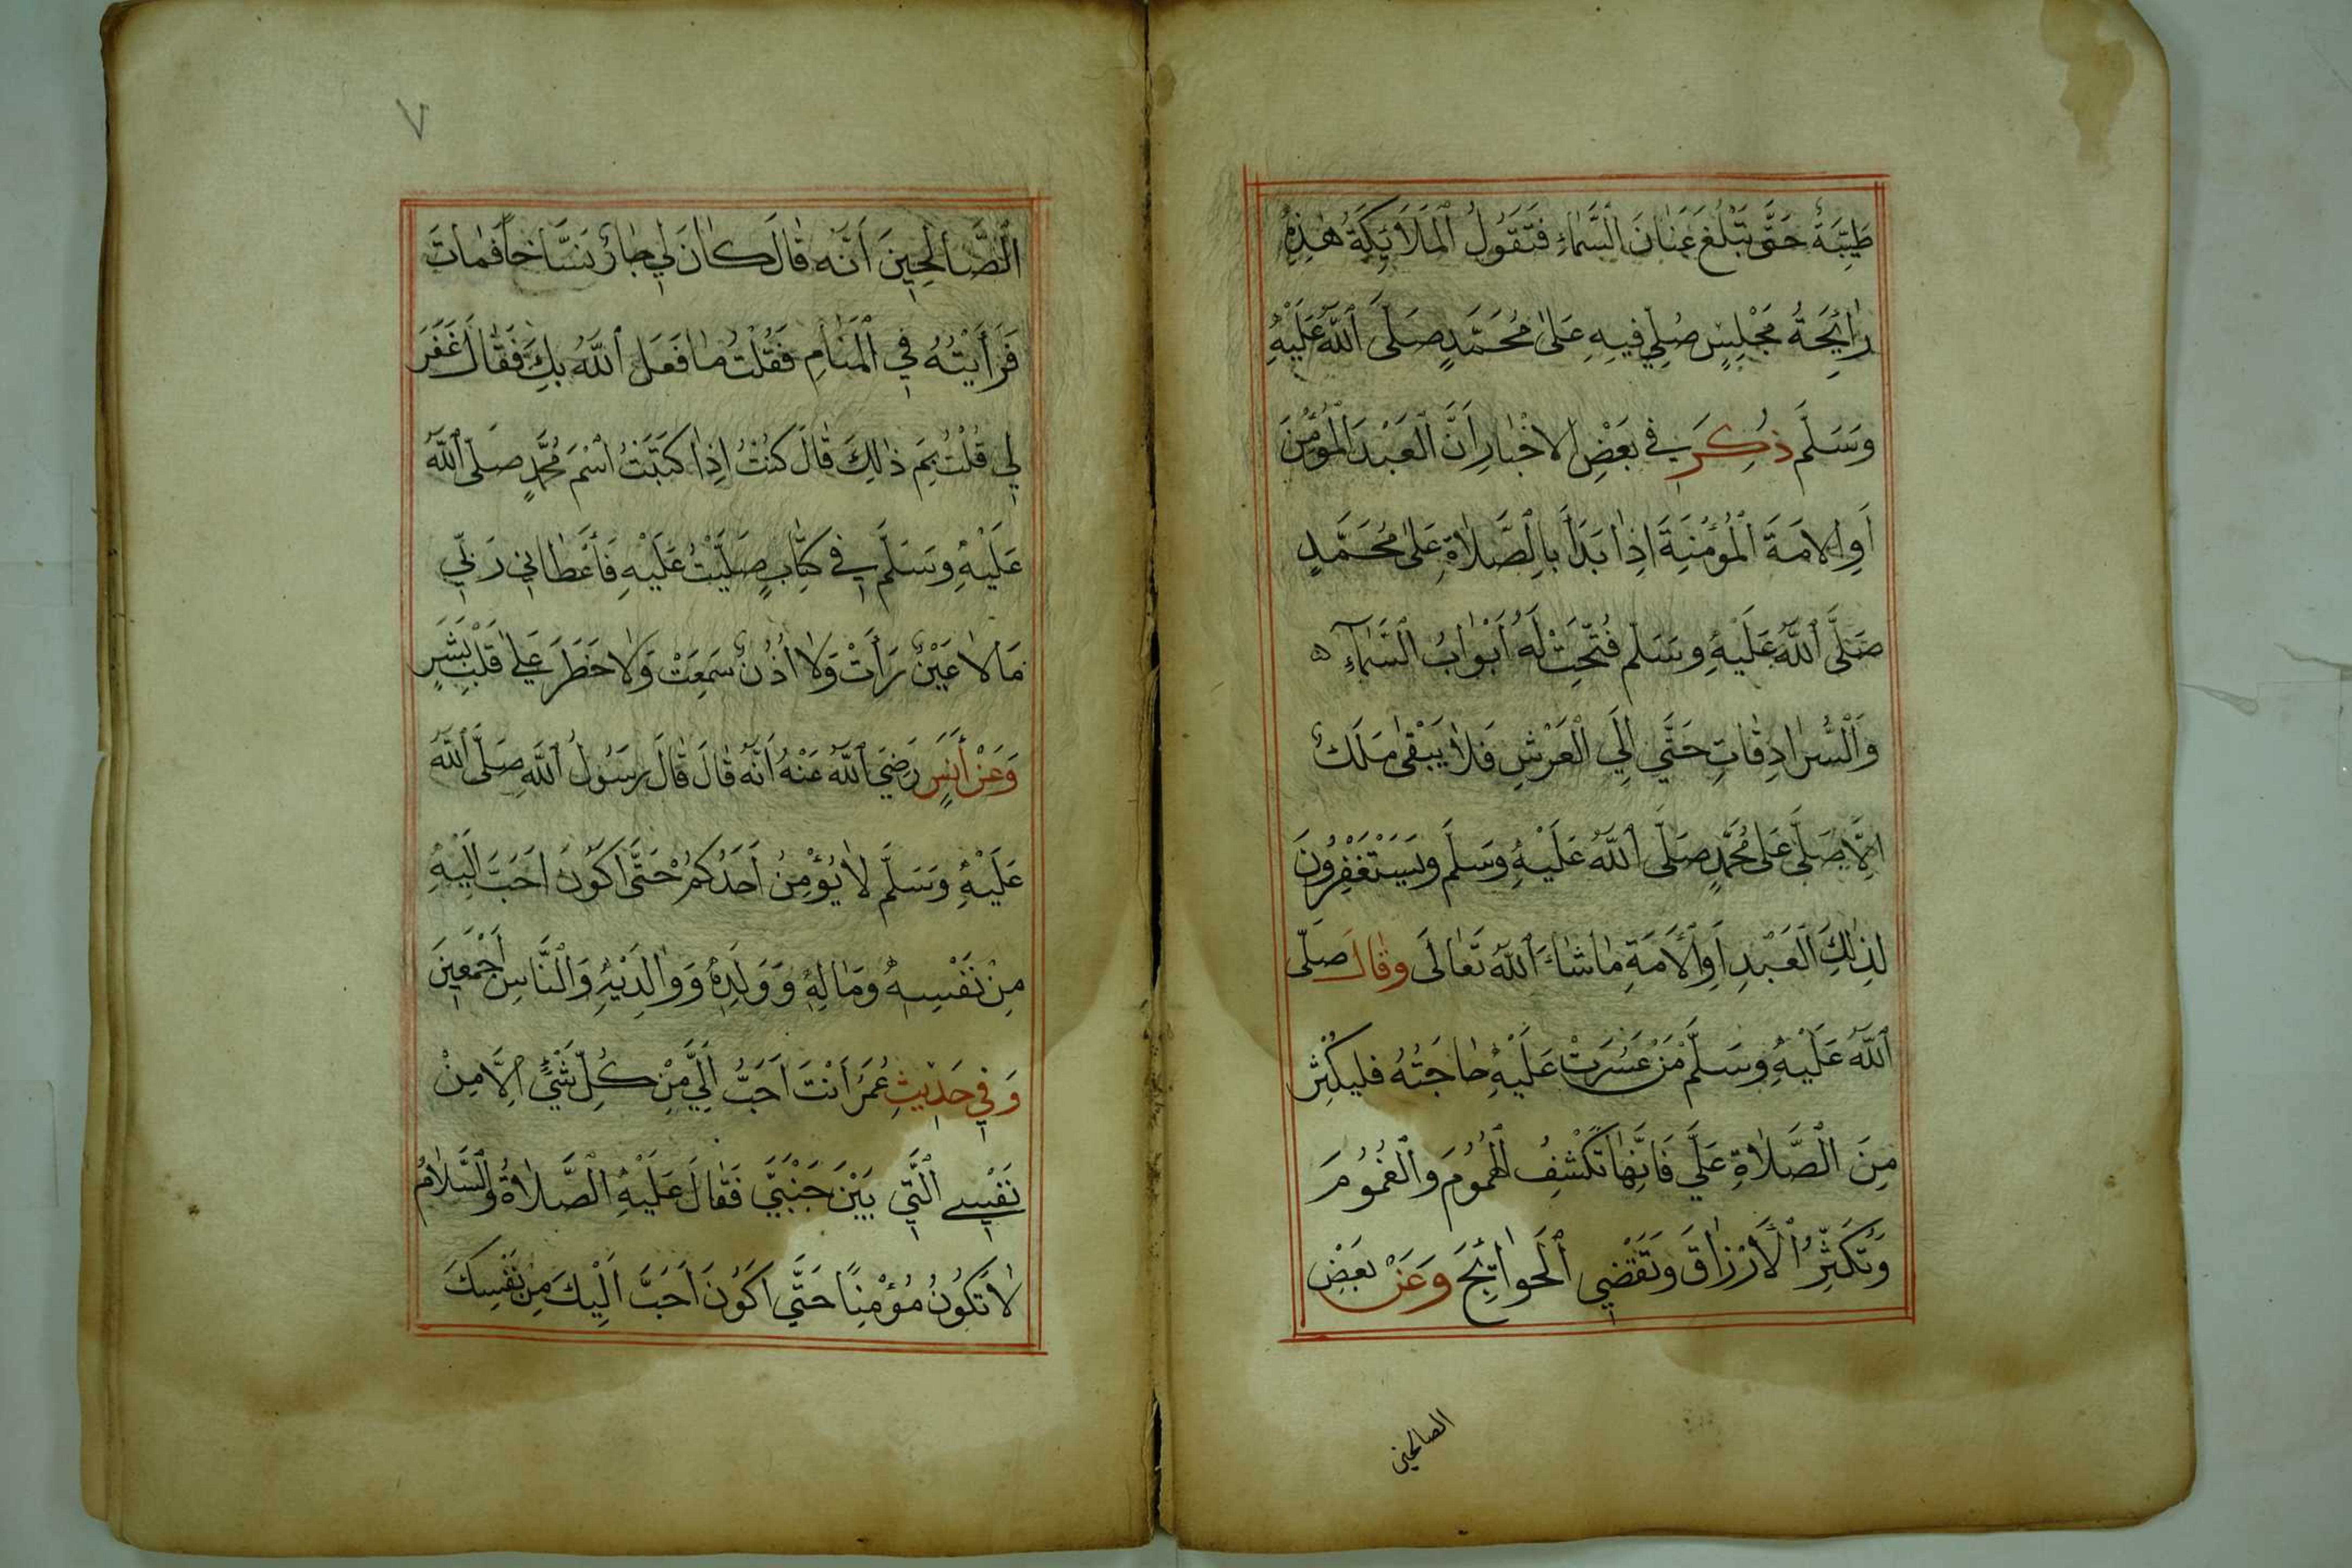 طَيِّبَةٌ حَتَّى تَبْلُغَ عَنَانَ اَلسَّمَاءِ فَتَقُولُ اَلْمَلَائِكَةُ هٰذِهِ
رَائِحَةُ مَجْلِسٍ صُلِّيَ فِيهِ عَلَى مُحَمَّدٍ صَلَّى اَللّٰهُ عَلَيْهِ
وَسَلَّمَ ذُكِرَ فِي بَعْضِ الاَخْبَارِ اَنَّ اَلْعَبْدَ الْمُؤْمِنَ
اَوِ الاَمَةَ اَلْمُؤْمِنَةَ اِذَا بَدَأَ بِالصَّلَاةِ عَلَى مُحَمَّدٍ
صَلَّى اَللّٰهُ عَلَيْهِ وَسَلَّمَ فُتِّحَتْ لَهُ أَبْوَابُ اَلسَّمَآءِ ۵
وَاَلسُّرَادِقَاتِ حَتَّي اِلَي اَلْعَرْشِ فَلَا يَبْقَى مَلَكٌ
اِلَّا يُصَلِّي عَلَى مُحَمَّدٍ صَلَّى اَللّٰهُ عَلَيْهِ وَسَلَّمَ وَيَسْتَغْفِرُونَ
لِذٰلِكَ اَلْعَبْدِ اَوِ اَلْأَمَةِ مَا شَاءَ اَللّٰهُ تَعَالَى وَقَالَ صَلَّى
اَللّٰهُ عَلَيْهِ وَسَلَّمَ مَنْ عَسُرَتْ عَلَيْهِ حَاجَتُهُ فَلْيُكْثِرْ
مِنَ اَلصَّلَاةِ عَلَيَّ فَاِنَّهَا تَكْشِفُ اَلْهُمُومَ وَاَلْغُمُومَ
وَتُكَثِّرُ اَلْأَرْزَاقَ وَتَقْضِي اَلْحَوَائِجَ وَعَنْ بَعْضِ
الصالحين
٧
اَلصَّالِحِينَ اَنَّهُ قَالَ كَانَ لِي جَارٌ نَسَّاخاً فَمَاتَ
فَرَأَيْتُهُ فِي اَلْمَنَامِ فَقُلْتُ مَا فَعَلَ اَللّٰهُ بِكَ فَقَالَ غَفَرَ
لِي قُلْتُ بِمَ ذٰلِكَ قَالَ كُنْتُ اِذَا كَتَبْتُ اسْمَ مُحَمَّدٍ صَلَّى اَللّٰهُ
عَلَيْهِ وَسَلَّمَ فِي كِتَابٍ صَلَّيْتُ عَلَيْهِ فَأَعْطَانِي رَبِّي
مَالَا عَيْنٌ رَأَتْ وَلَا أُذُنٌ سَمِعَتْ وَلَا خَطَرَ عَلَى قَلْبِ بَشَرٍ
وَعَنْ أَنَسٍ رَضِيَ اَللّٰهُ عَنْهُ اَنَّهُ قَالَ قَالَ رَسُولُ اَللّٰهِ صَلَّى اَللّٰهُ
عَلَيْهِ وَسَلَّمَ لَا يُؤْمِنُ اَحَدُكُمْ حَتَّى اَكُونَ اَحَبَّ اِلَيْهِ
مِنْ نَفْسِهِ وَمَالِهِ وَوَلَدِهِ وَوَالِدَيْهِ وَالنَّاسِ أَجْمَعِينَ
وَفِي حَدِيثِ عُمَرَ أَنْتَ اَحَبُّ اِلَيَّ مِنْ كُلِّ شَيْءٍ اِلَّا مِنْ
نَفْسِي اَلَّتِي بَيْنَ جَنْبَيَّ فَقَالَ عَلَيْهِ اَلصَّلَاةُ وَالسَّلَامُ
لَا تَكُونُ مُؤْمِنًا حَتَّي اَكُونَ اَحَبَّ اِلَيْكَ مِنْ نَفْسِكَ